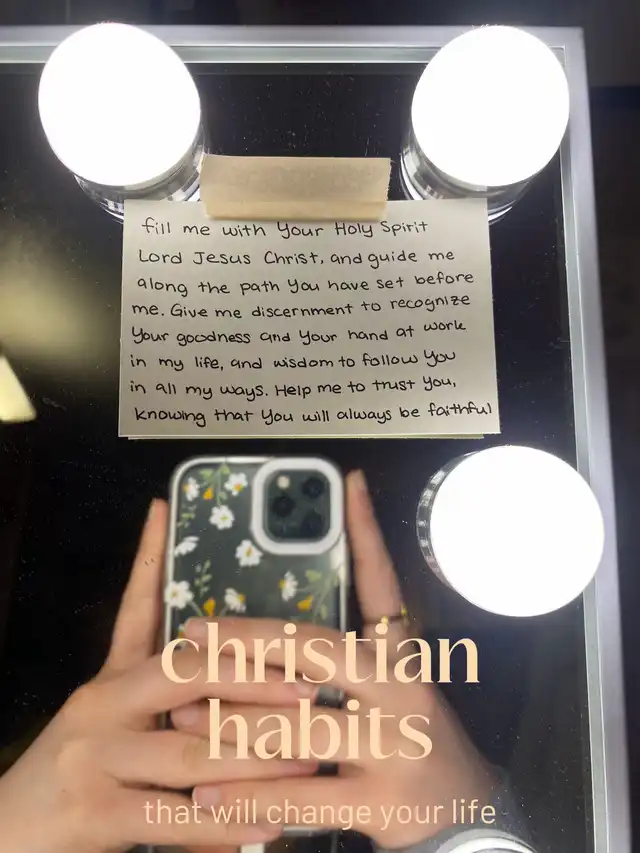 fill me with Your Holy Spirit
Lord Jesus Christ, and guide me
along the path You have set before
me. Give me discernment to recognize
Your goodness and Your hand at work
in my life, and wisdom to follow You
in all my ways. Help me to trust You,
knowing that You will always be faithful
christian
habits
that will change your life